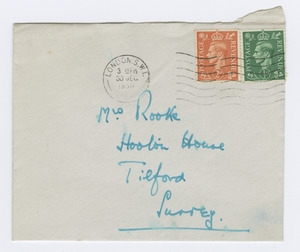 LONDON. S.W.1.
3 PM
30 DEC
1950
POSTAGE REVENUE
POSTAGE REVENUE
Mrs Rooke
Hoolin House
Tilford
Surrey.